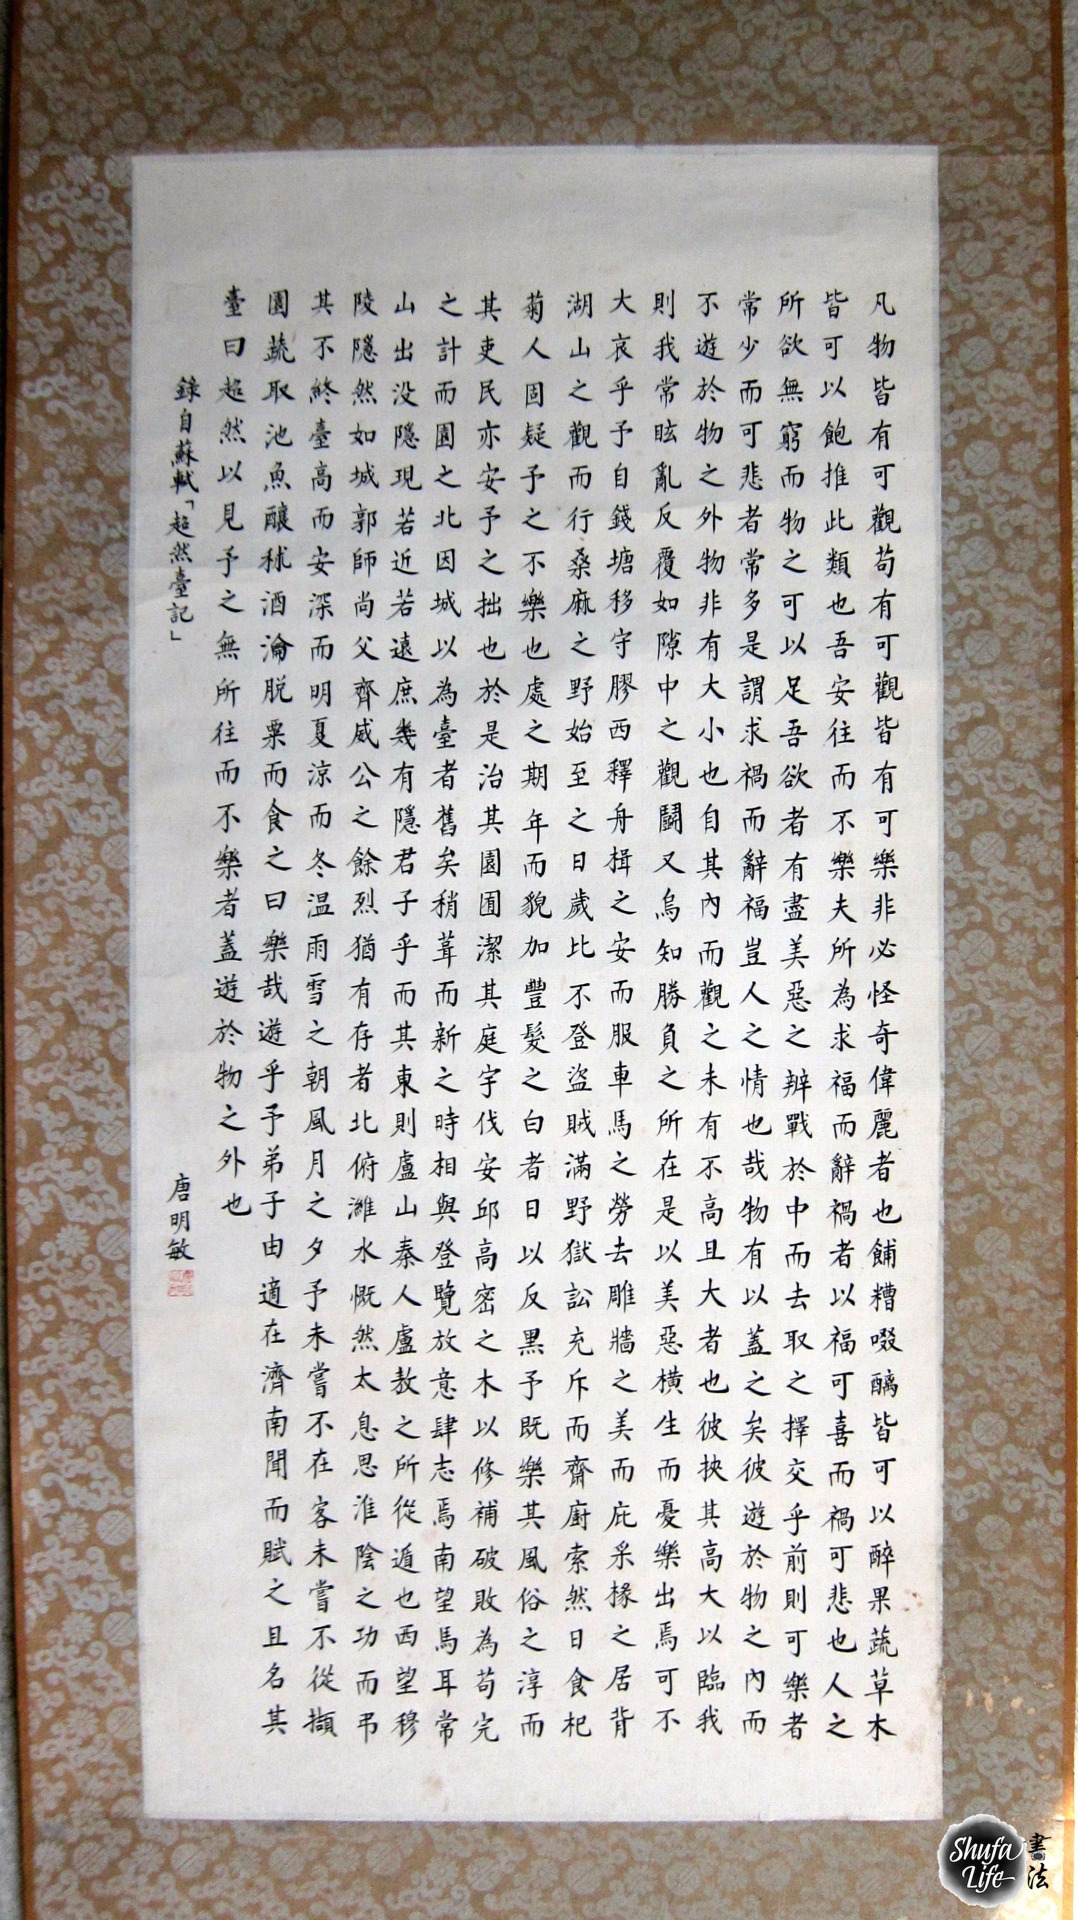 凡物皆有可觀苟有可觀皆有可樂非必怪奇偉麗者也餔糟啜醨皆可以醉果蔬草木
皆可以飽推此類也吾安往而不樂夫所為求福而辭禍者以福可喜而禍可悲也人之
所欲無窮而物之可以足吾欲者有盡美惡之辨戰於中而去取之擇交乎前則可樂者
常少而可悲者常多是謂求禍而辭福豈人之情也哉物有以蓋之矣彼遊於物之內而
不遊於物之外物非有大小也自其內而觀之未有不高且大者也彼挾其高大以臨我
則我常眩亂反覆如隙中之觀鬪又烏知勝負之所在是以美惡橫生而憂樂出焉可不
大哀乎予自錢塘移守膠西釋舟楫之安而服車馬之勞去雕牆之美而庇采椽之居背
湖山之觀而行桑麻之野始至之日歲比不登盜賊滿野獄訟充斥而齋廚索然日食杞
菊人固疑予之不樂也處之期年而貌加豐髮之白者日以反黑予既樂其風俗之淳而
其吏民亦安予之拙也於是治其園囿潔其庭宇伐安邱高密之木以修補破敗為苟完
之計而園之北因城以為臺者舊矣稍葺而新之時相與登覽放意肆志焉南望馬耳常
山出没隱現若近若遠庶幾有隱君子乎而其東則盧山秦人盧敖之所從遁也西望穆
陵隱然如城郭師尚父齊威公之餘烈猶有存者北俯濰水慨然太息思淮陰之功而弔
其不終臺高而安深而明夏涼而冬温雨雪之朝風月之夕予未嘗不在客未嘗不從擷
園蔬取池魚釀秫酒瀹脱粟而食之曰樂哉遊乎予弟子由適在濟南聞而賦之且名其
臺曰超然以見予之無所往而不樂者蓋遊於物之外也
錄自蘇軾「超然臺記」
唐明敏
Shufa Life 書法